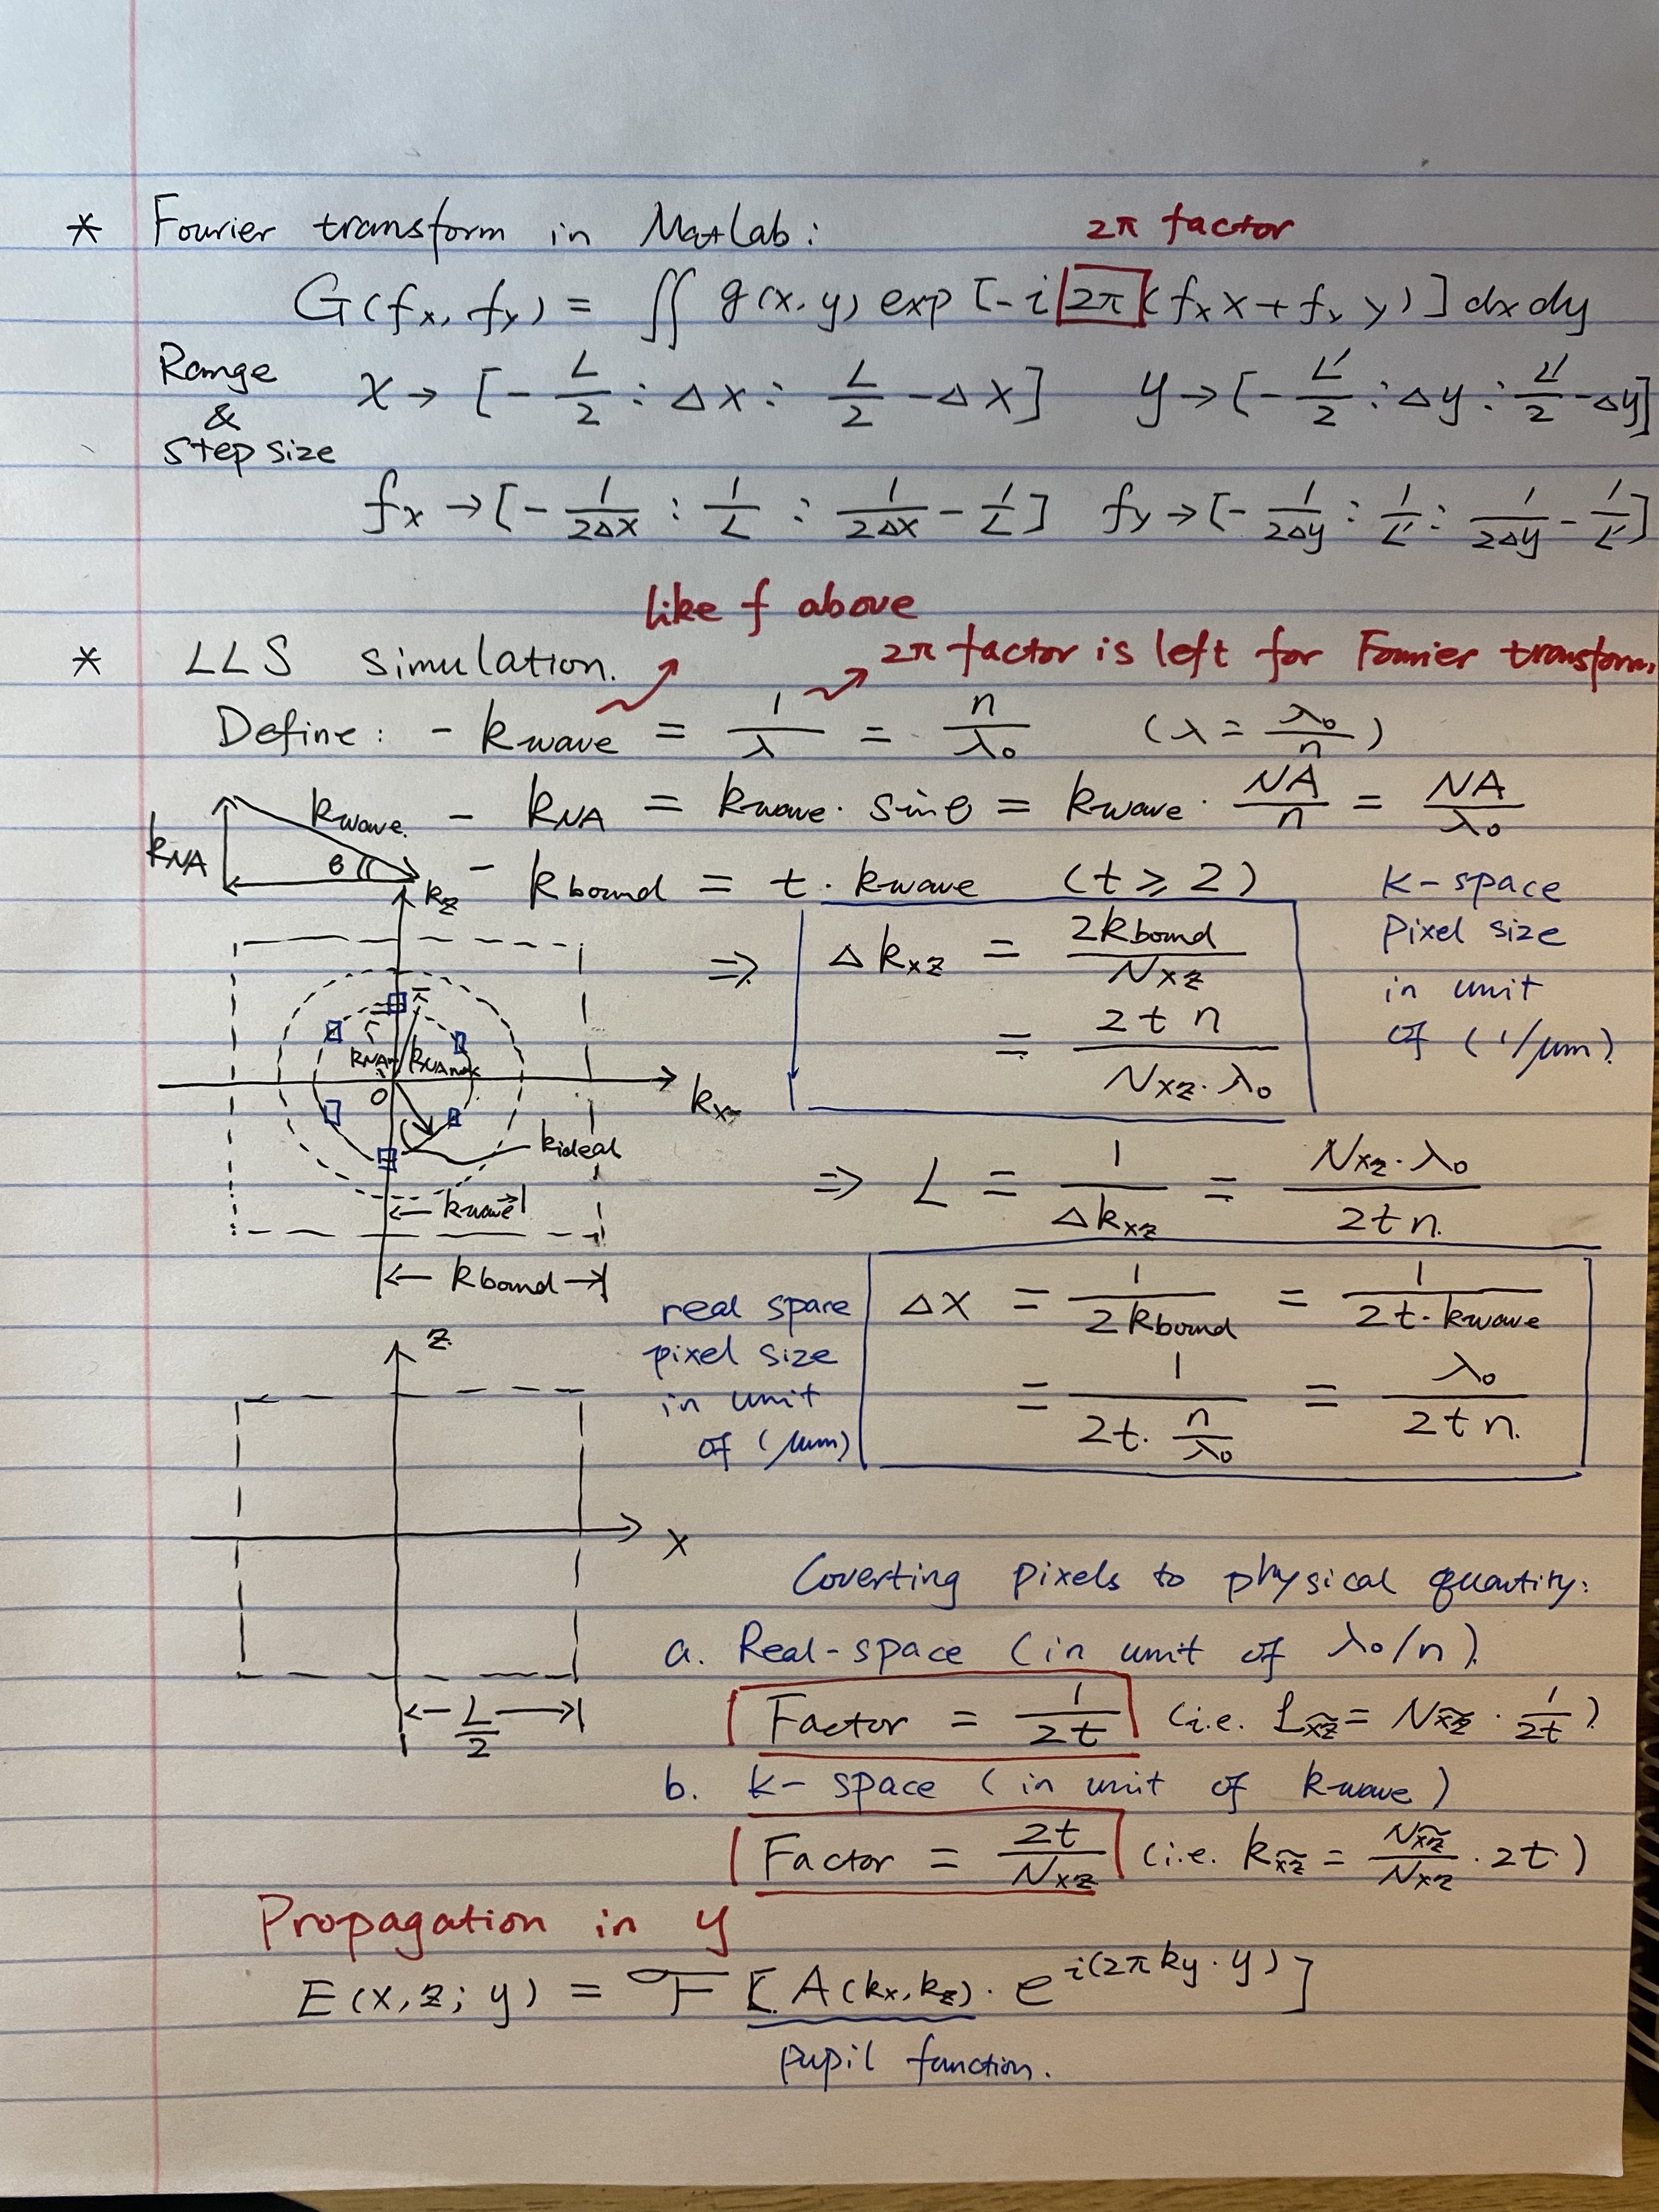 * Fourier transform in MatLab: 2π factor
G(fx, fy) = ∬ g(x,y) exp[-i2π(fx x+fy y)]dxdy
Range & Step size
x→[-L/2 : Δx : L/2 -Δx] y→[-L'/2 : Δy : L'/2 -Δy]
fx→[-1/2Δx : 1/L : 1/2Δx - 1/L] fy→[-1/2Δy : 1/L' : 1/2Δy - 1/L']
like f above
* LLS simulation. 2π factor is left for Fourier transform.
Define: - kwave = 1/λ = n/λ₀ (λ = λ₀/n)
- kNA = kwave · sinθ = kwave · NA/n = NA/λ₀
kwave.
kNA
θ
- kbound = t · kwave (t ≥ 2)
kz
kx
O
kNAmax
kideal
kwave
kbound
⇒ Δkxz = 2kbound/Nxz
= 2tn/Nxz·λ₀
k-space
pixel size
in unit
of (1/μm).
⇒ L = 1/Δkxz = Nxz·λ₀/2tn.
Δx = 1/2kbound = 1/2t·kwave
= 1/2t·n/λ₀ = λ₀/2tn.
real space
pixel size
in unit
of (μm)
z
x
L/2
Coverting pixels to physical quantity:
a. Real-space (in unit of λ₀/n).
Factor = 1/2t (i.e. Lx̃z̃ = Nx̃z̃ · 1/2t)
b. k-space (in unit of kwave)
Factor = 2t/Nxz (i.e. kx̃z̃ = Nx̃z̃/Nxz · 2t)
Propagation in y
E(x,z; y) = F[A(kx,kz)· e^i(2πky·y)]
pupil function.